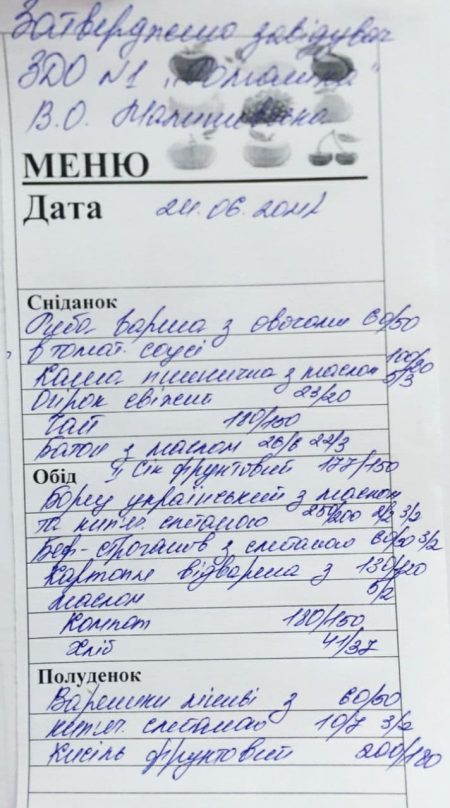 Затверджено завідувач
ЗДО №1 „Ромашка"
В.О.
МЕНЮ
Дата 24.06.20
Сніданок
Риба варена з овочами 60/50
в томат. соусі
Каша пшенична з маслом 100/120 5/3
Огірок свіжий 23/20
Чай 180/150
Батон з маслом 26/6 22/3
ІІ Сік фруктовий 177/150
Обід
Борщ український з маслом
та кип'яч. сметаною 250/200 2/2 3/2
Беф-строганів з сметаною 60/50 3/2
Картопля відварена з 130/120
маслом 5/2
Компот 180/150
Хліб 41/37
Полуденок
Вареники ліниві з 60/50
кип'яч. сметаною 10/7 3/2
Кисіль фруктовий 200/180